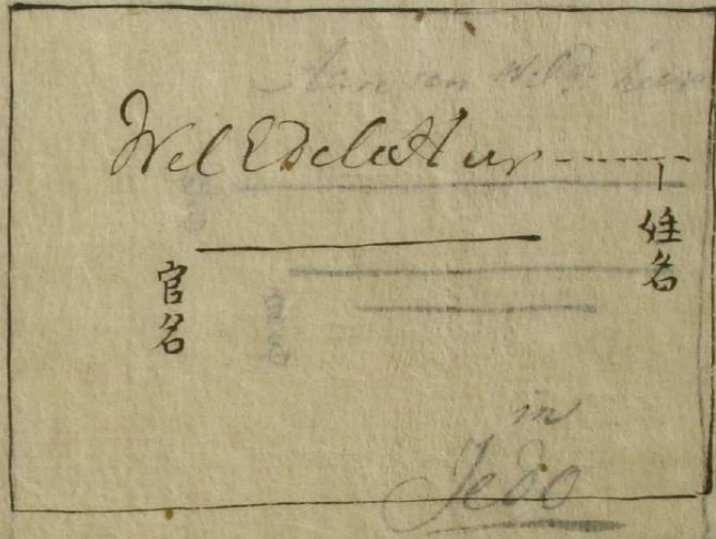 Wel Edele Heer
姓名
官名
in
Jedo